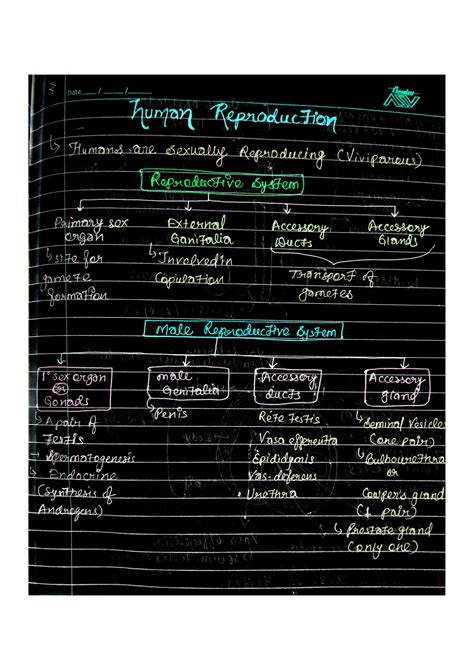 Date / /
Human Reproduction
↳ Humans are Sexually Reproducing (Viviparous)
Reproductive System
Primary sex organ
↳ site for gamete formation
External Genitalia
↳ Involved In Copulation
Accessory Ducts
Accessory Glands
Transport of gametes
Male Reproductive System
1° sex organ or Gonads
↳ A pair of Testis
→ Spermatogenesis
↳ Endocrine
(synthesis of Androgens)
male Genitalia
↳ Penis
Accessory ducts
Rete testis
Vasa efferentia
Epididymis
Vas-deferens
• Urethra
Accessory gland
↳ Seminal Vesicles
(one pair)
↳ Bulbourethra
or
Cowper's gland
(1 pair)
↳ Prostate gland
(only one)